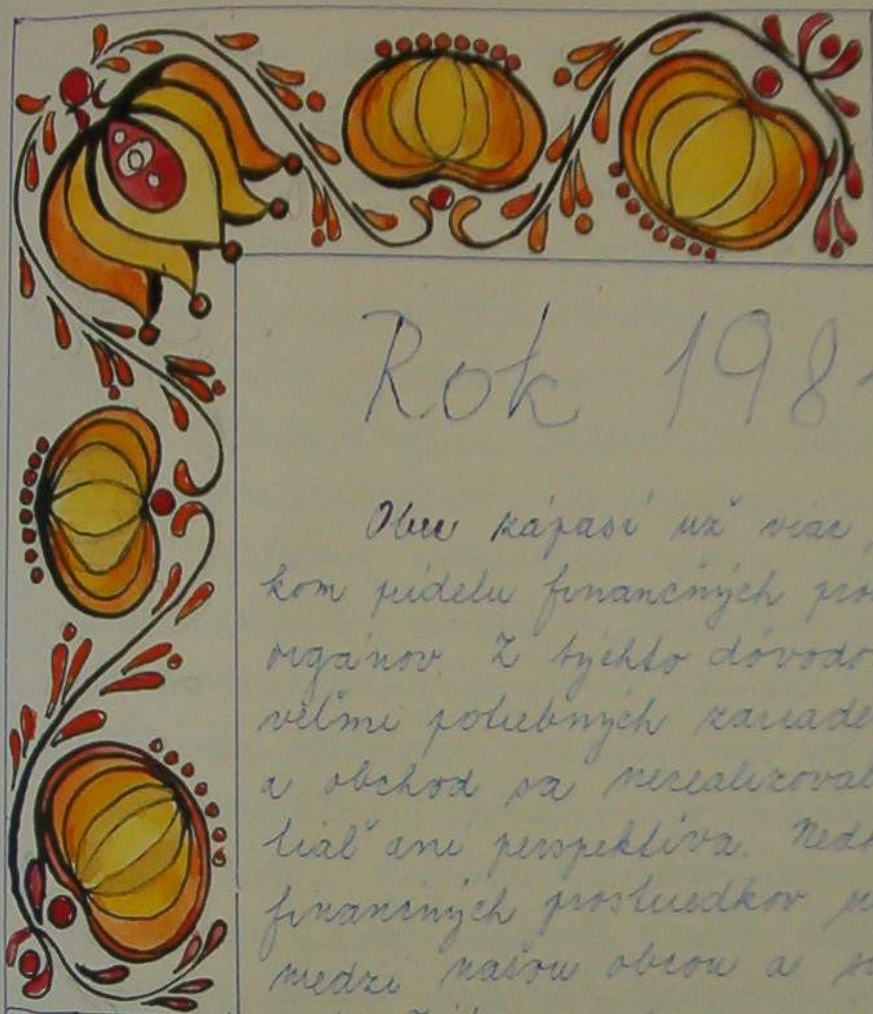 Rok 198
Obec zápasí už viac
kom pridelu finančných pro
orgánov. Z týchto dôvodo
veľmi potrebných zariade
a obchod sa nerealizoval
tiaľ ani perspektíva. Ned
finančných prostriedkov
medzi našou obcou a